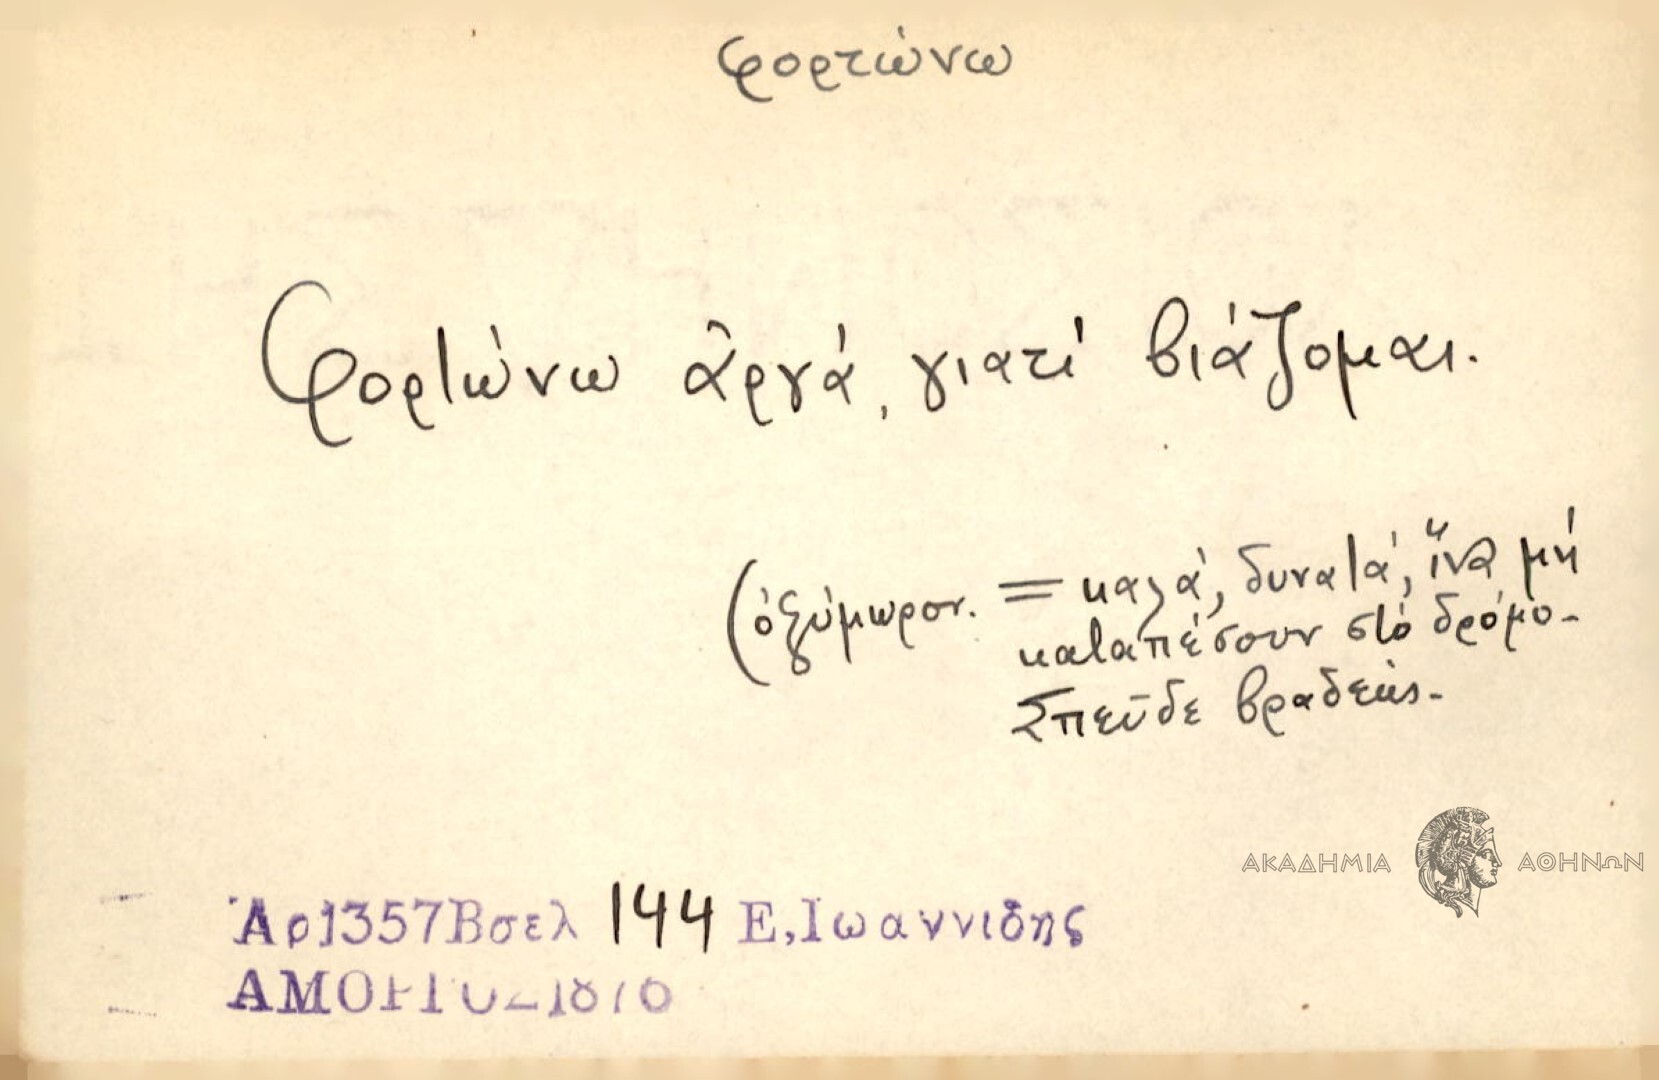 φορτώνω
Φορτώνω ἀργά, γιατί βιάζομαι.
(ὀξύμωρον. = καλά, δυνατά, ἵνα μή
καταπέσουν στό δρόμο-
Σπεῦδε βραδέως-
ΑΚΑΔΗΜΙΑ ΑΘΗΝΩΝ
Ἀρ1357Βσελ 144 Ε,Ιωαννιδης
ΑΜΟΡΓΟΣ1876